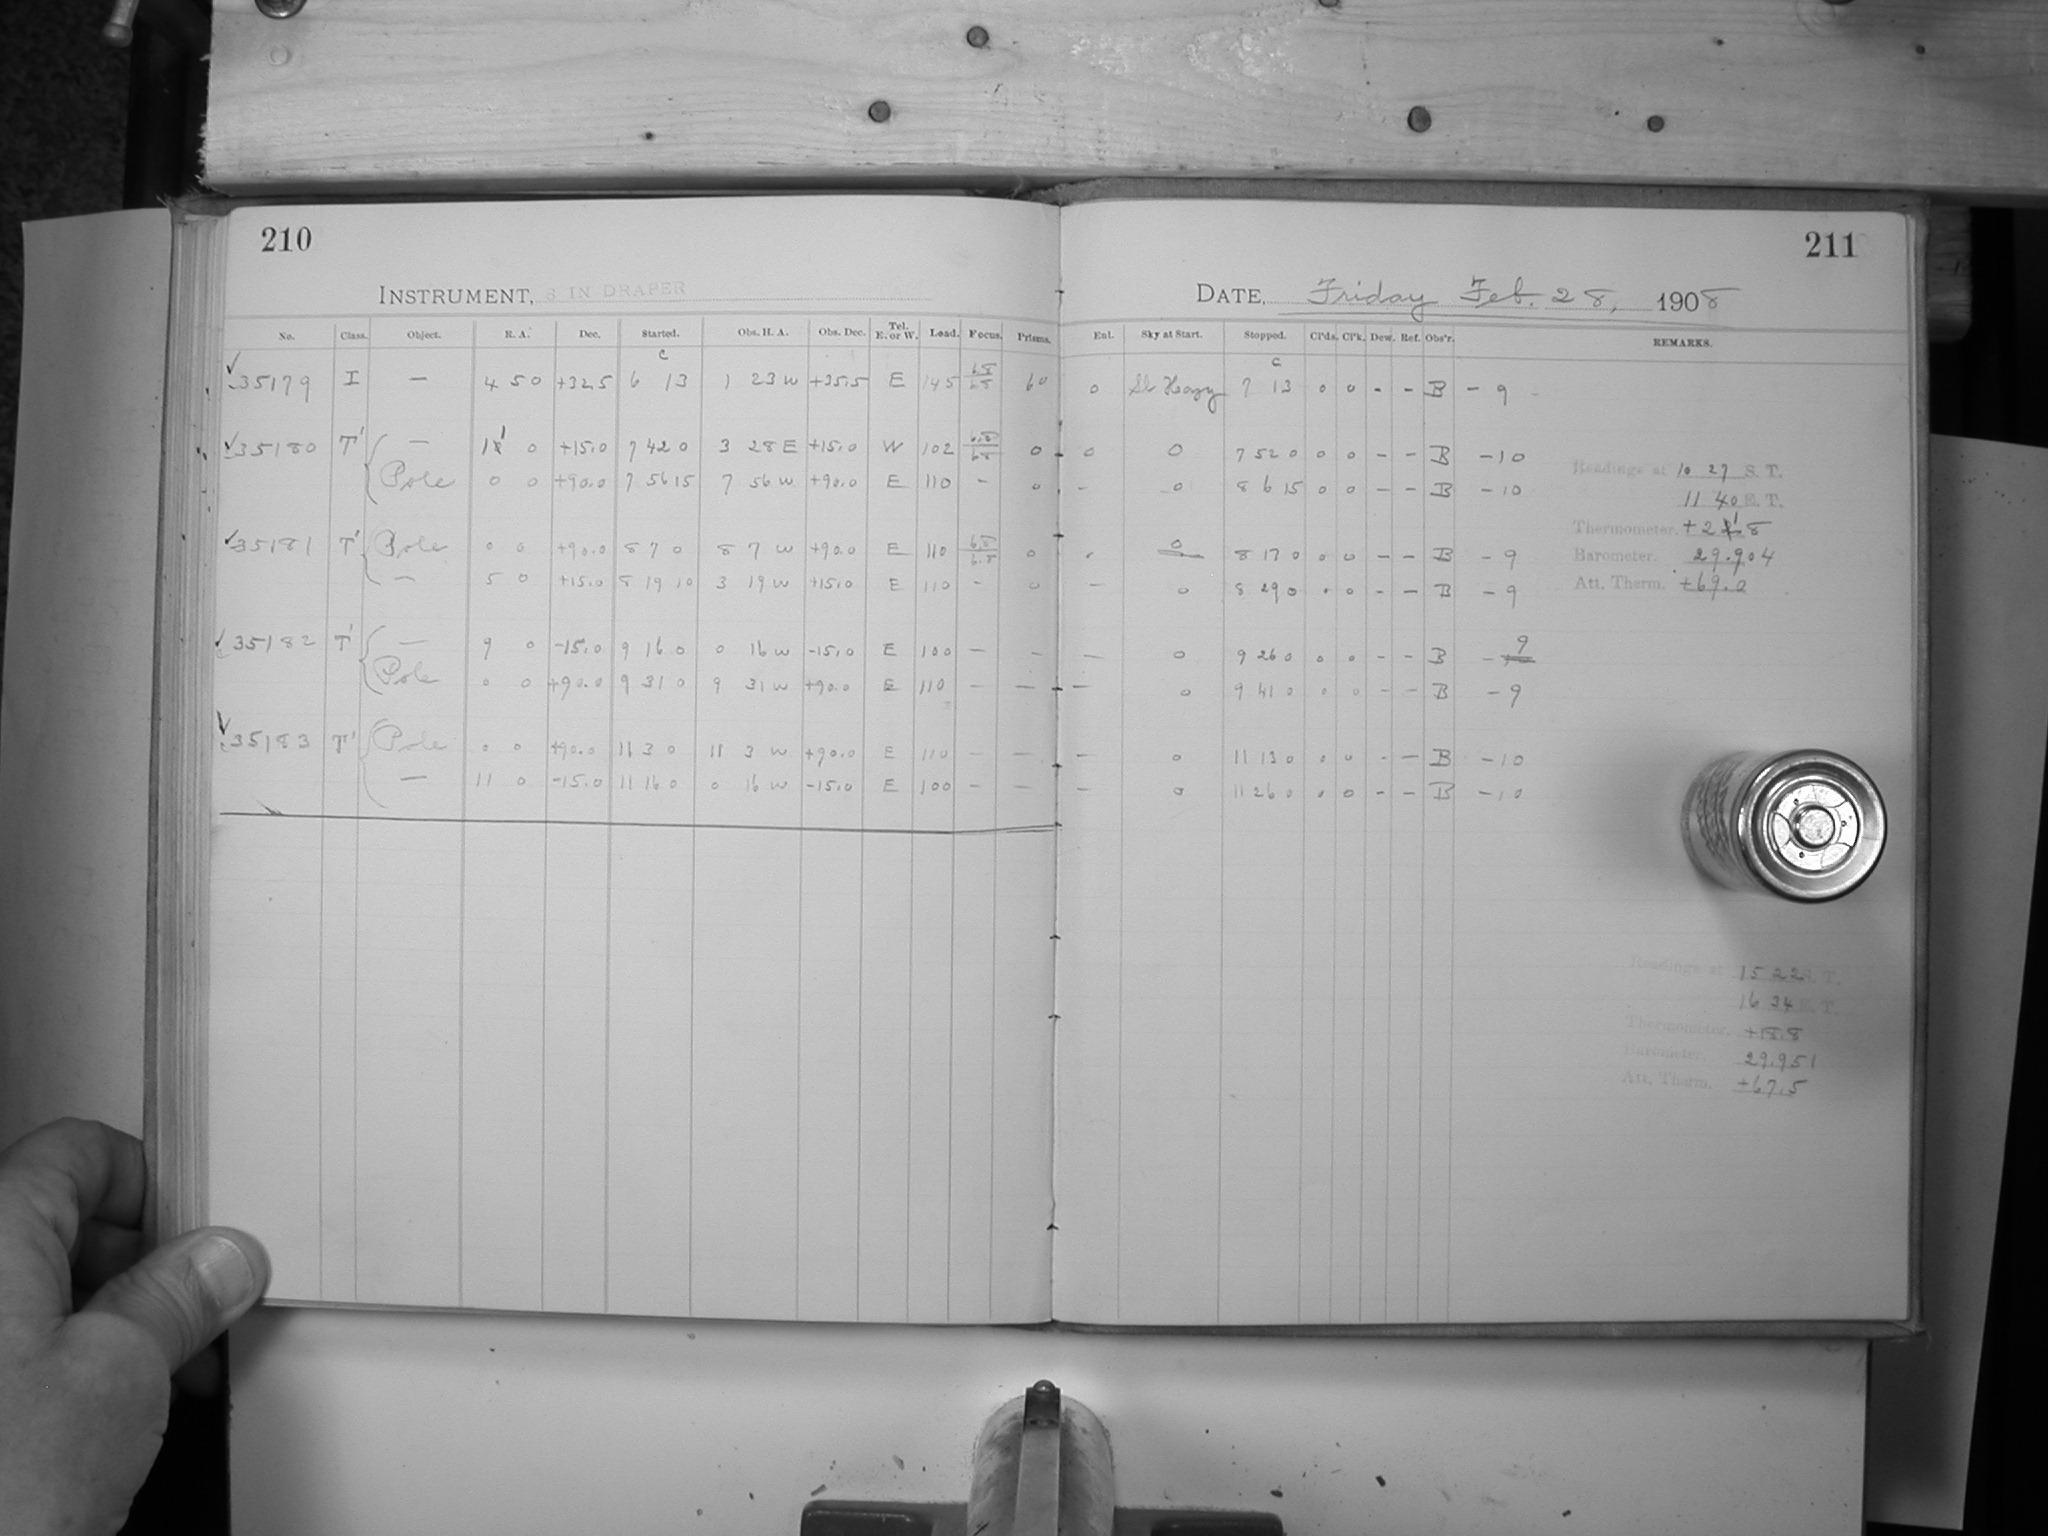 210
211
INSTRUMENT, 8 IN DRAPER
DATE, Friday Feb. 28, 1908
No. Class. Object. R. A. Dec. Started. Obs. H. A. Obs. Dec. Tel. E. or W. Load. Focus. Prisms. Enl. Sky at Start. Stopped. Cl'ds. Cl'k. Dew. Ref. Obs'r. REMARKS.
c c
35179 I — 4 50 +32.5 6 13 1 23 W +35.5 E 145 6.8 6.8 60 0 Sl Hazy 7 13 0 0 - - B - 9
35180 T' — 11 0 +15.0 7 42 0 3 28 E +15.0 W 102 6.8 6.8 0 0 0 7 52 0 0 0 - - B -10
Pole 0 0 +90.0 7 56 15 7 56 W +90.0 E 110 - 0 - 0 8 6 15 0 0 - - B -10
35181 T' Pole 0 0 +90.0 8 7 0 8 7 W +90.0 E 110 6.8 6.8 0 0 8 17 0 0 0 - - B - 9
— 5 0 +15.0 8 19 10 3 19 W +15.0 E 110 - 0 - 0 8 29 0 0 0 - - B - 9
35182 T' — 9 0 -15.0 9 16 0 0 16 W -15.0 E 100 - - - 0 9 26 0 0 0 - - B - 9
Pole 0 0 +90.0 9 31 0 9 31 W +90.0 E 110 - - - 0 9 41 0 0 0 - - B - 9
35183 T' Pole 0 0 +90.0 11 3 0 11 3 W +90.0 E 110 - - - 0 11 13 0 0 0 - - B -10
— 11 0 -15.0 11 16 0 0 16 W -15.0 E 100 - - - 0 11 26 0 0 0 - - B -10
Readings at 10 27 S. T.
11 40 E. T.
Thermometer. +21.8
Barometer. 29.904
Att. Therm. +69.0
Readings at 15 22 S. T.
16 34 E. T.
Thermometer. +18.8
Barometer. 29.951
Att. Therm. +67.5